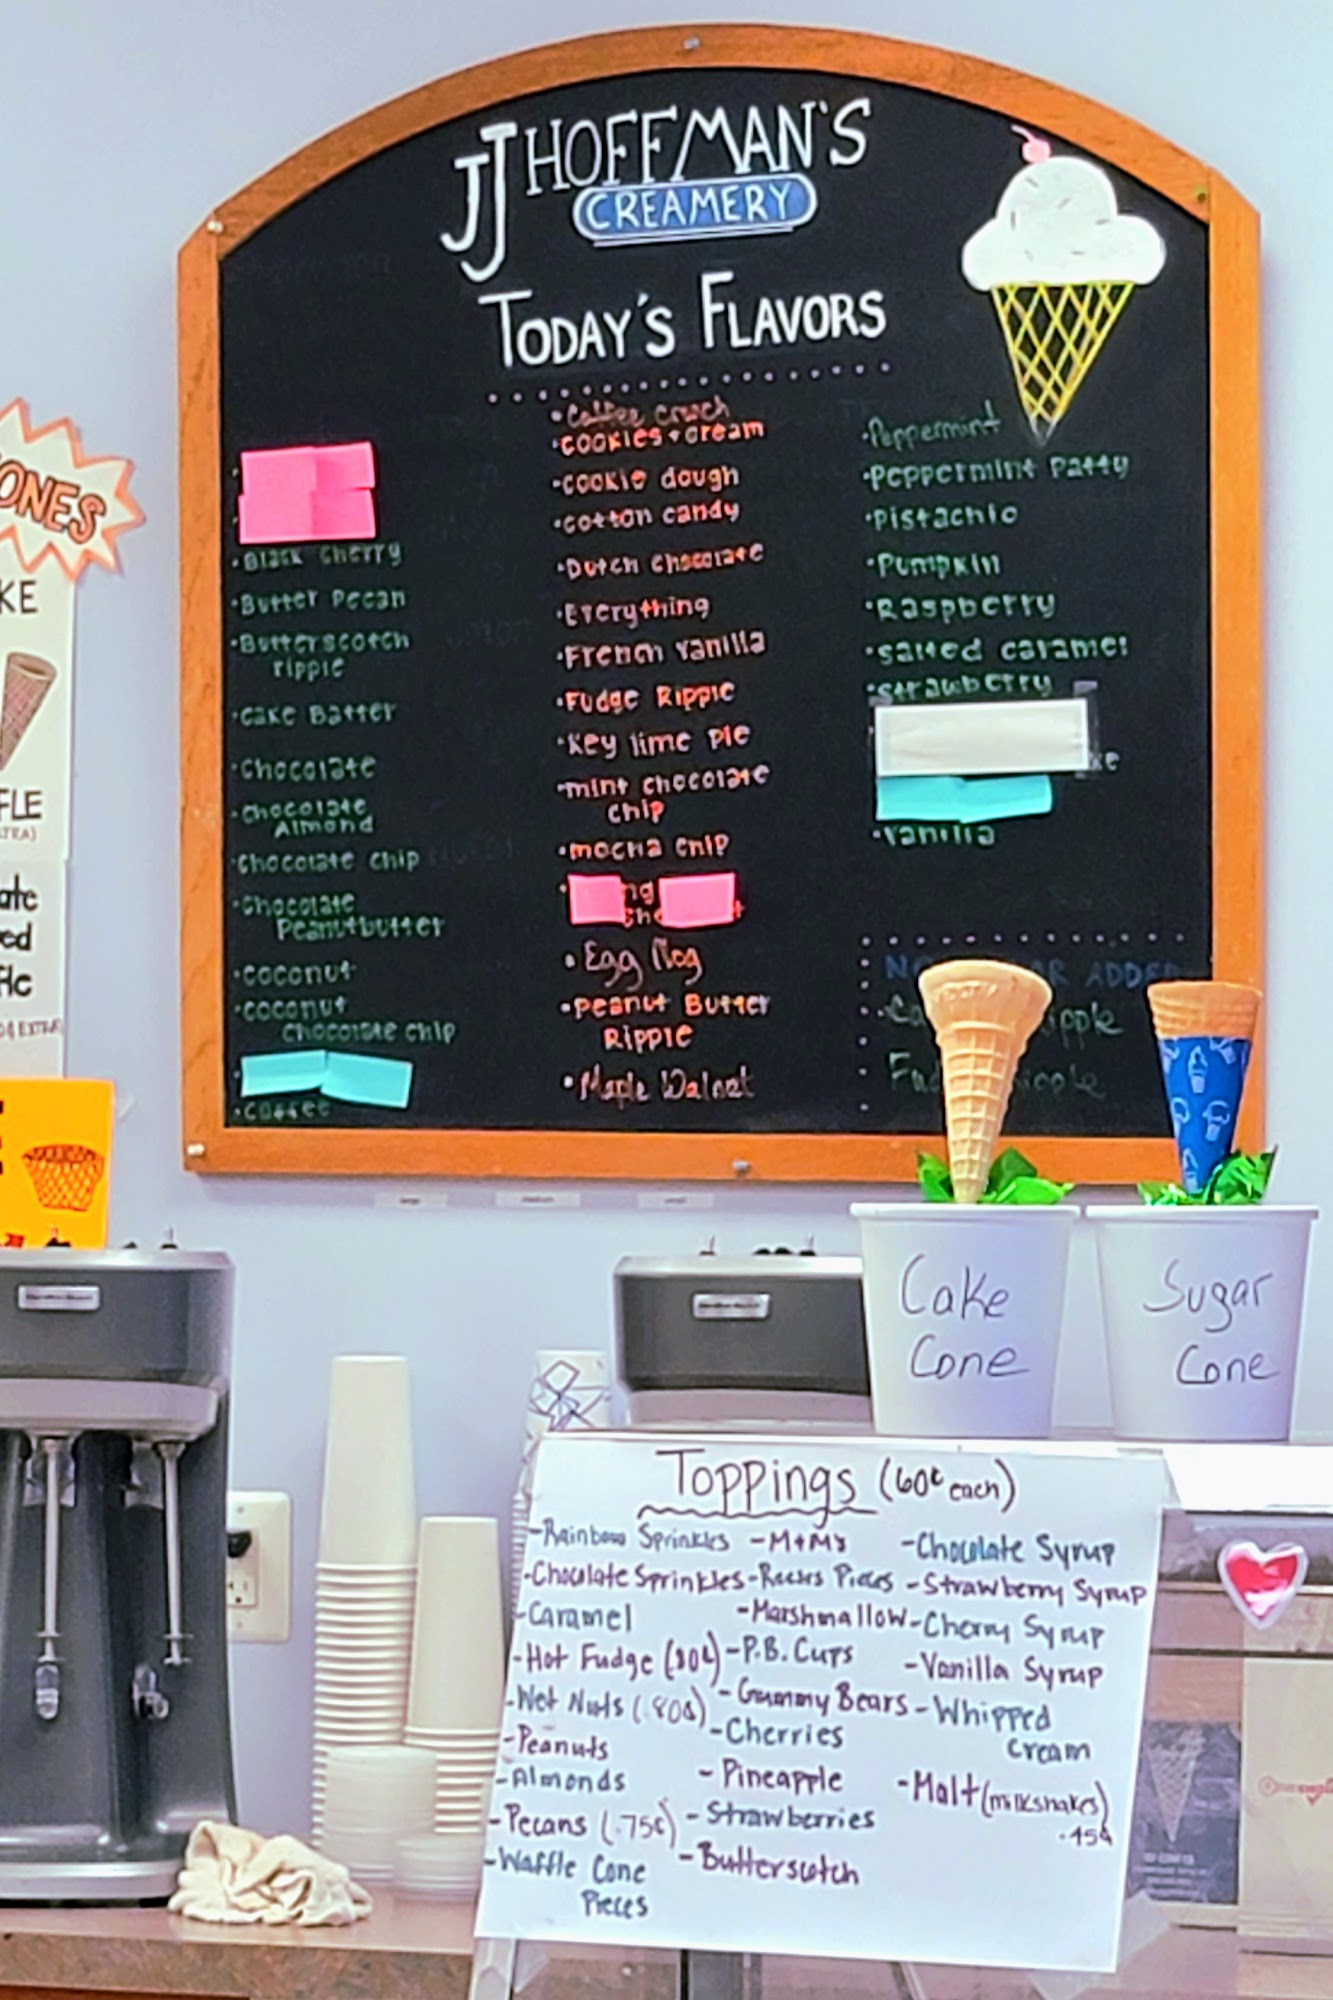 JJ HOFFMAN'S
CREAMERY
TODAY'S FLAVORS
·Black Cherry
·Butter Pecan
·Butterscotch
ripple
·Cake Batter
·Chocolate
·Chocolate
Almond
·Chocolate chip
·Chocolate
Peanutbutter
·coconut
·coconut
Chocolate chip
·coffee
·Coffee Crunch
·cookies + cream
·cookie dough
·cotton candy
·Dutch chocolate
·Everything
·French vanilla
·Fudge Ripple
·Key lime pie
·mint chocolate
chip
·mocha chip
ng
·Egg Nog
·Peanut Butter
Ripple
·Maple Walnut
·Peppermint
·Peppermint Patty
·Pistachio
·Pumpkin
·Raspberry
·salted caramel
·strawberry
ke
·vanilla
NO AR ADDED
ipple
ONES
KE
FLE
ate
ed
Cake
Cone
Sugar
Cone
Toppings (60¢ each)
-Rainbow Sprinkles
-Chocolate Sprinkles
-Caramel
-Hot Fudge (80¢)
-Wet Nuts (.80¢)
-Peanuts
-Almonds
-Pecans (.75¢)
-Waffle Cone
Pieces
-M+M's
-Reeses Pieces
-Marshmallow
-P.B. Cups
-Gummy Bears
-Cherries
-Pineapple
-Strawberries
-Butterscotch
-Chocolate Syrup
-Strawberry Syrup
-Cherry Syrup
-Vanilla Syrup
-Whipped
Cream
-Malt (milkshakes)
.45¢